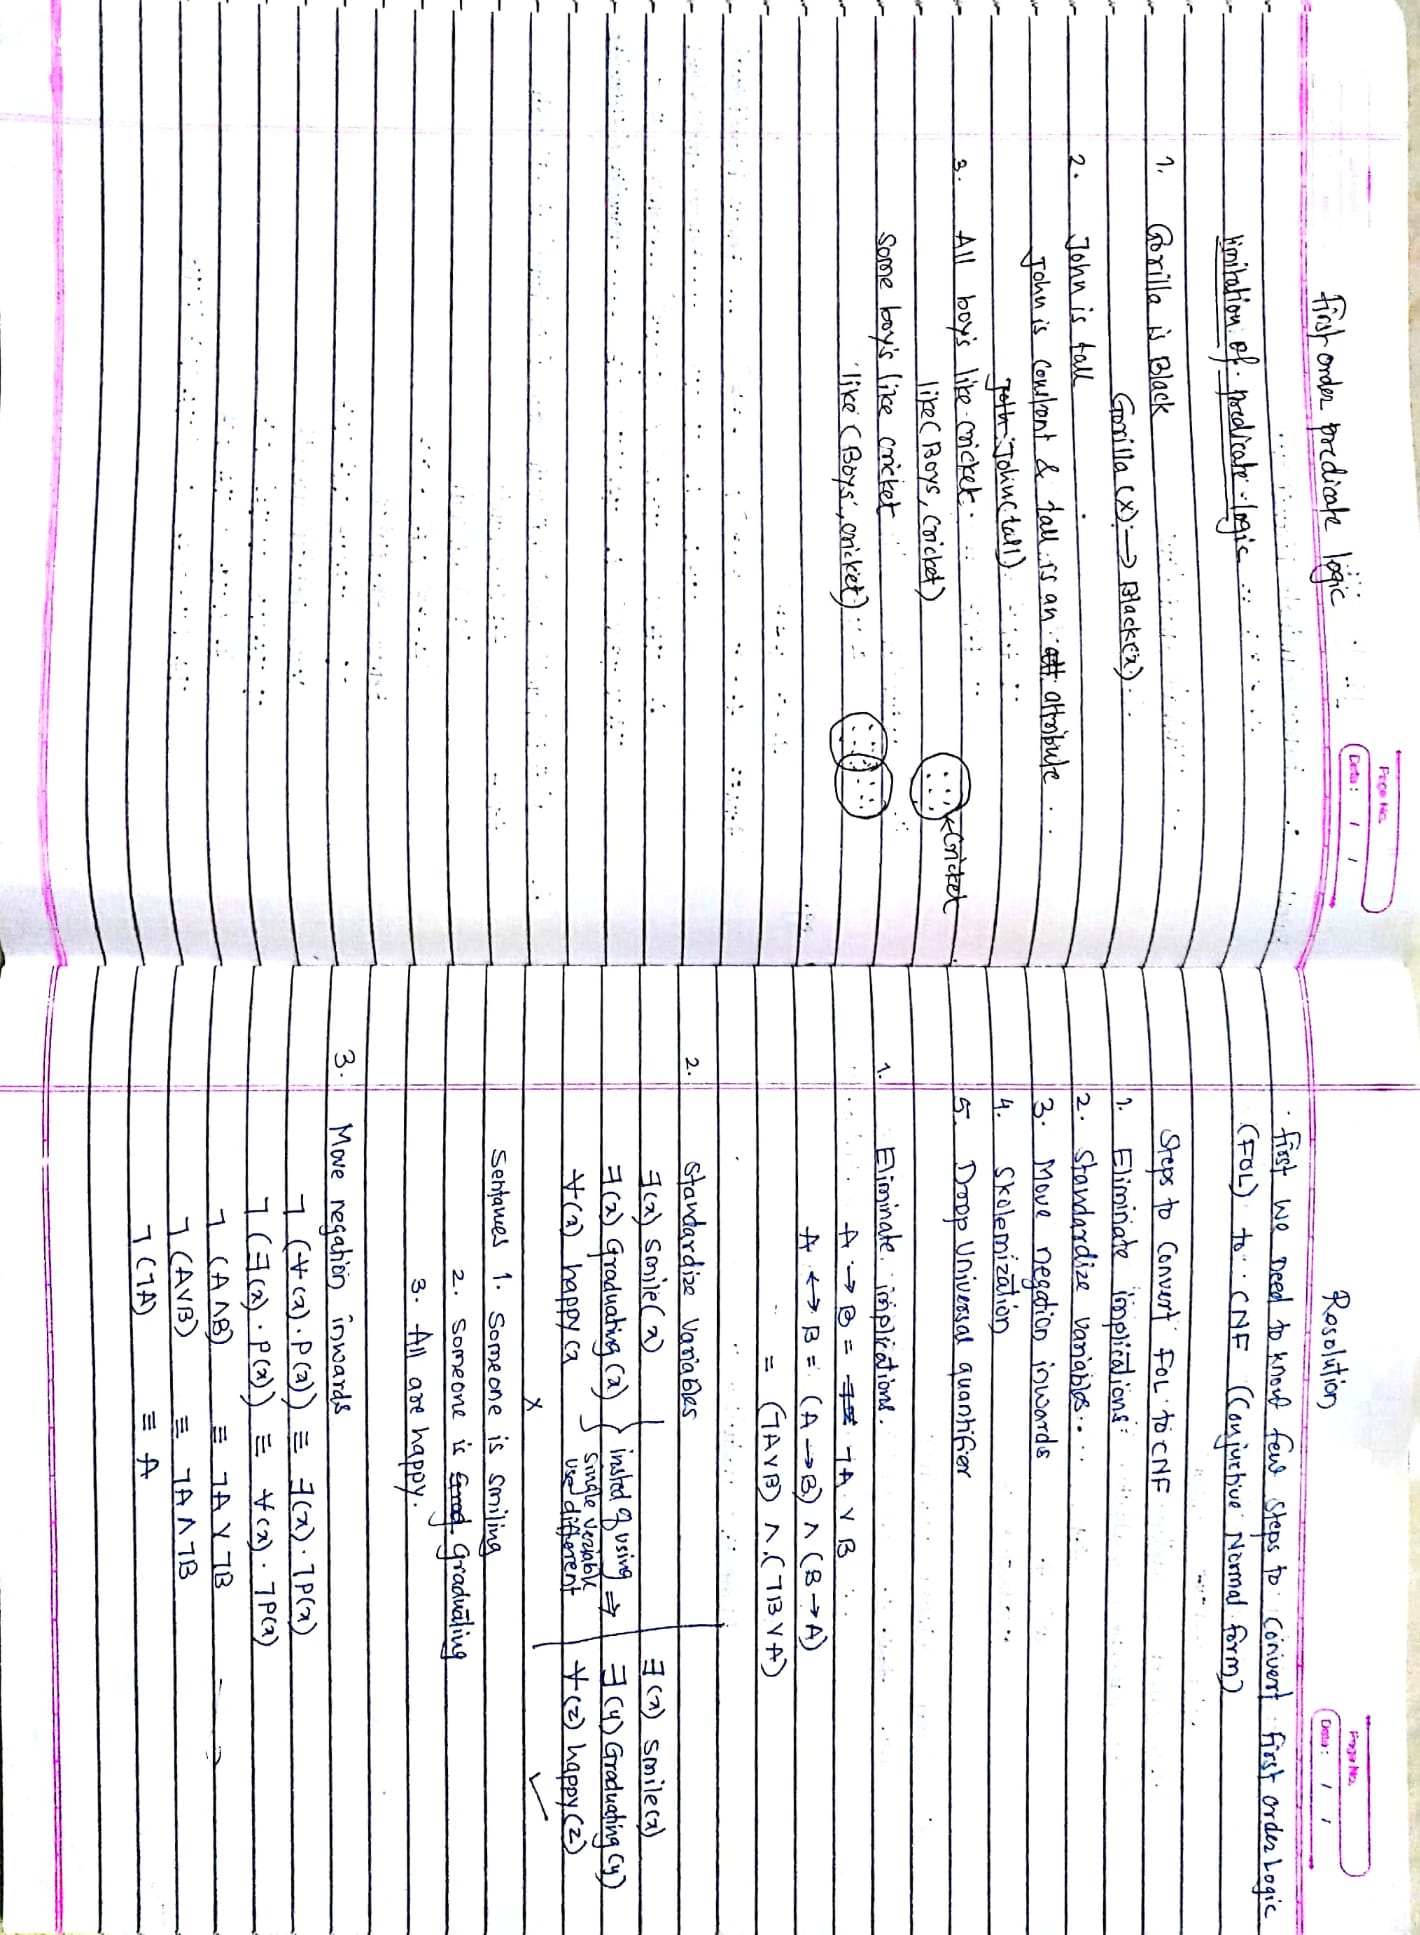 Page No.
Date: / /
First order predicate logic
limitation of predicate logic
1. Gorilla is Black
Gorilla (x) → Black(x)
2. John is tall
John is constant & tall is an att attribute
Joth John(tall)
3. All boy's like cricket
like (Boys, Cricket)
Cricket
Some boy's like cricket
like (Boys, cricket)
Page No.
Date: / /
Resolution
first we need to know few steps to convert first order Logic
(FOL) to CNF (Conjuctive Normal form)
Steps to Convert FOL to CNF
1. Eliminate implications
2. Standardize variables
3. Move negation inwards
4. Skolemization
5. Drop Universal quantifier
1. Eliminate implications.
A → B = ¬A ∨ B
A ↔ B = (A → B) ∧ (B → A)
= (¬A∨B) ∧ (¬B∨A)
2. Standardize Variables
∃(x) smile(x)
∃(x) Graduating (x)
∀(x) happy (x
insted of using ⇒
single veriable
use different
∃(x) smile(x)
∃(y) Graduating (y)
∀(z) happy (z)
x ✓
Sentances 1. Someone is smiling
2. Someone is Grad Graduating
3. All are happy.
3. Move negation inwards
¬ (∀(x). P(x)) ≡ ∃(x). ¬P(x)
¬ (∃(x). P(x)) ≡ ∀(x). ¬P(x)
¬ (A ∧ B) ≡ ¬A ∨ ¬B
¬ (A∨B) ≡ ¬A ∧ ¬B
¬ (¬A) ≡ A